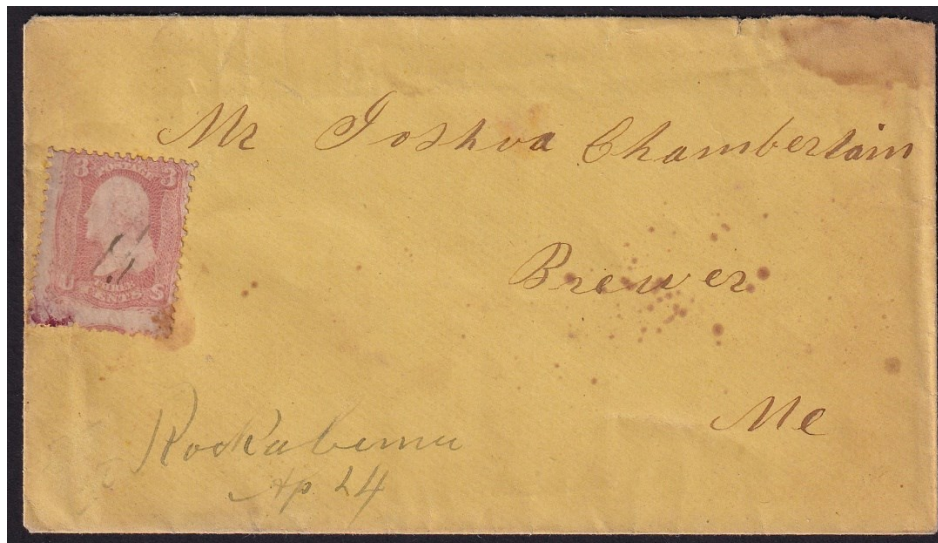 Mr Joshua Chamberlain
3 POSTAGE 3
U THREE S
CENTS
Brewer
Me
Rockabema
Ap 24